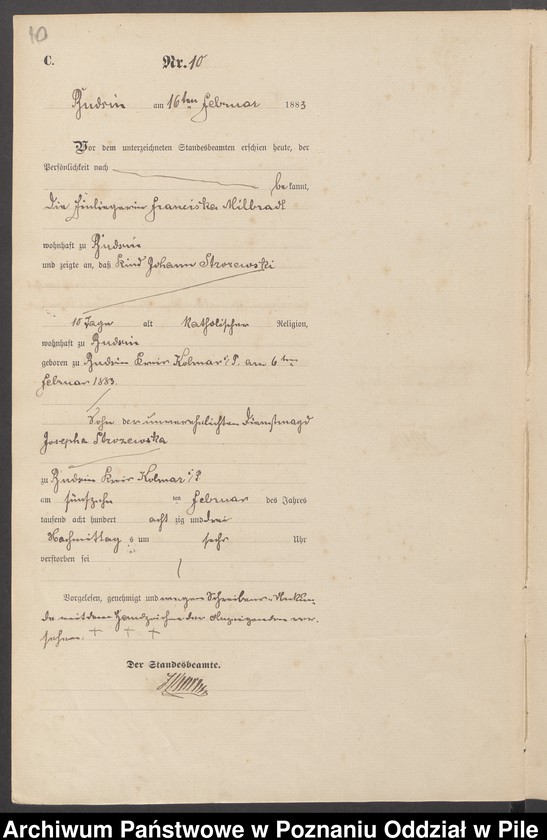 10
C. Nr. 10
Budsin am 16ten Februar 1883
Vor dem unterzeichneten Standesbeamten erschien heute, der
Persönlichkeit nach
bekannt,
die Einliegerin Franciska Milbradt
wohnhaft zu Budsin
und zeigte an, daß Kind Johann Strozewski
10 Tage alt katholischer Religion,
wohnhaft zu Budsin
geboren zu Budsin Kreis Kolmar i/P. am 6ten
Februar 1883.
Sohn der unverehelichten Dienstmagd
Josepha Strozewska
zu Budsin Kreis Kolmar i/P
am fünfzehn ten Februar des Jahres
tausend acht hundert acht zig und drei
Nachmittag s um sechs Uhr
verstorben sei
Vorgelesen, genehmigt und wegen Schreibens-Unkun-
de mit dem Handzeichen der Anzeigenden ver-
sehen. + + +
Der Standesbeamte.
Archiwum Państwowe w Poznaniu Oddział w Pile